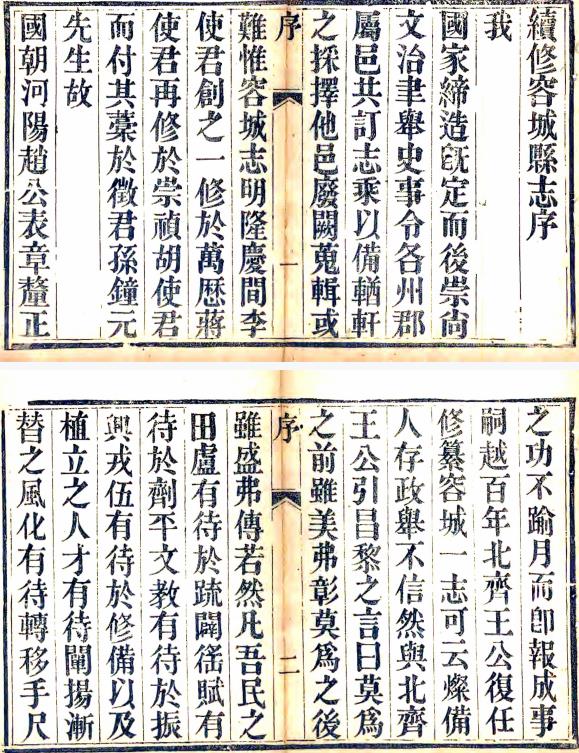 續修容城縣志序
我
國家締造旣定而後崇尚
文治聿舉史事令各州郡
屬邑共訂志乘以備輶軒
之採擇他邑廢闕蒐輯或
序
一
難惟容城志明隆慶間李
使君創之一修於萬歴蔣
使君再修於崇禎胡使君
而付其藁於徵君孫鐘元
先生故
國朝河陽趙公表章釐正
之功不踰月而卽報成事
嗣越百年北齊王公復任
修纂容城一志可云燦備
人存政舉不信然與北齊
王公引昌黎之言曰莫爲
之前雖美弗彰莫爲之後
序
二
雖盛弗傳若然凡吾民之
田廬有待於䟽闢徭賦有
待於劑平文教有待於振
興戎伍有待於修備以及
植立之人才有待闡揚漸
替之風化有待轉移手尺